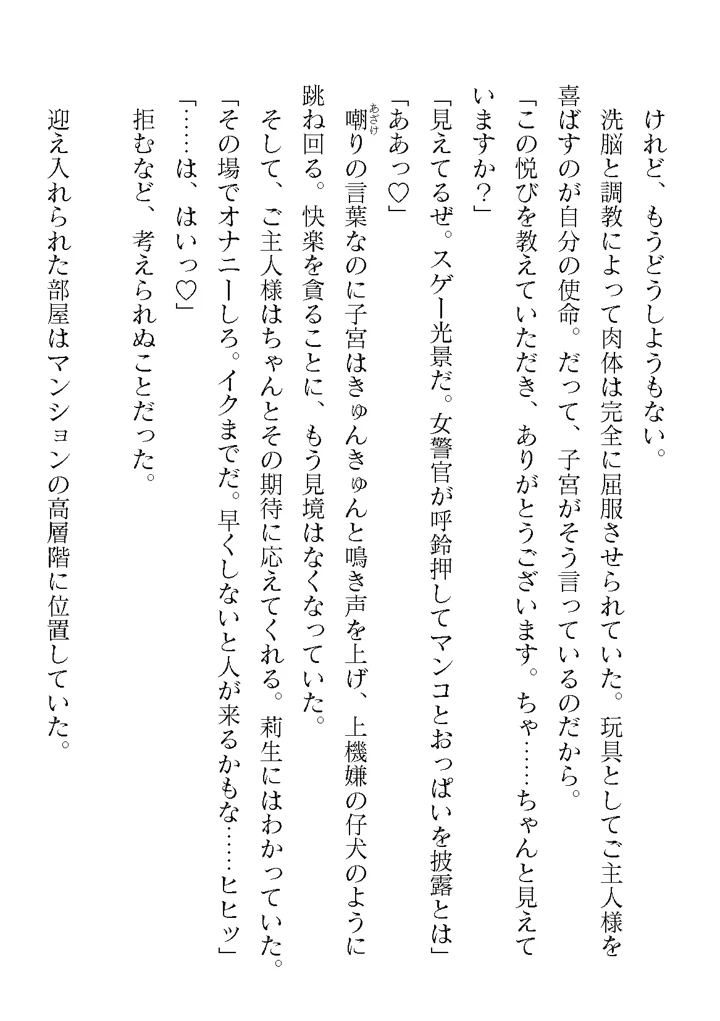 けれど、もうどうしようもない。
洗脳と調教によって肉体は完全に屈服させられていた。玩具としてご主人様を
喜ばすのが自分の使命。だって、子宮がそう言っているのだから。
「この悦びを教えていただき、ありがとうございます。ちゃ……ちゃんと見えて
いますか？」
「見えてるぜ。スゲー光景だ。女警官が呼鈴押してマンコとおっぱいを披露とは」
「ああっ♡」
嘲りの言葉なのに子宮はきゅんきゅんと鳴き声を上げ、上機嫌の仔犬のように
跳ね回る。快楽を貪ることに、もう見境はなくなっていた。
そして、ご主人様はちゃんとその期待に応えてくれる。莉生にはわかっていた。
「その場でオナニーしろ。イクまでだ。早くしないと人が来るかもな……ヒヒッ」
「……は、はいっ♡」
拒むなど、考えられぬことだった。
迎え入れられた部屋はマンションの高層階に位置していた。